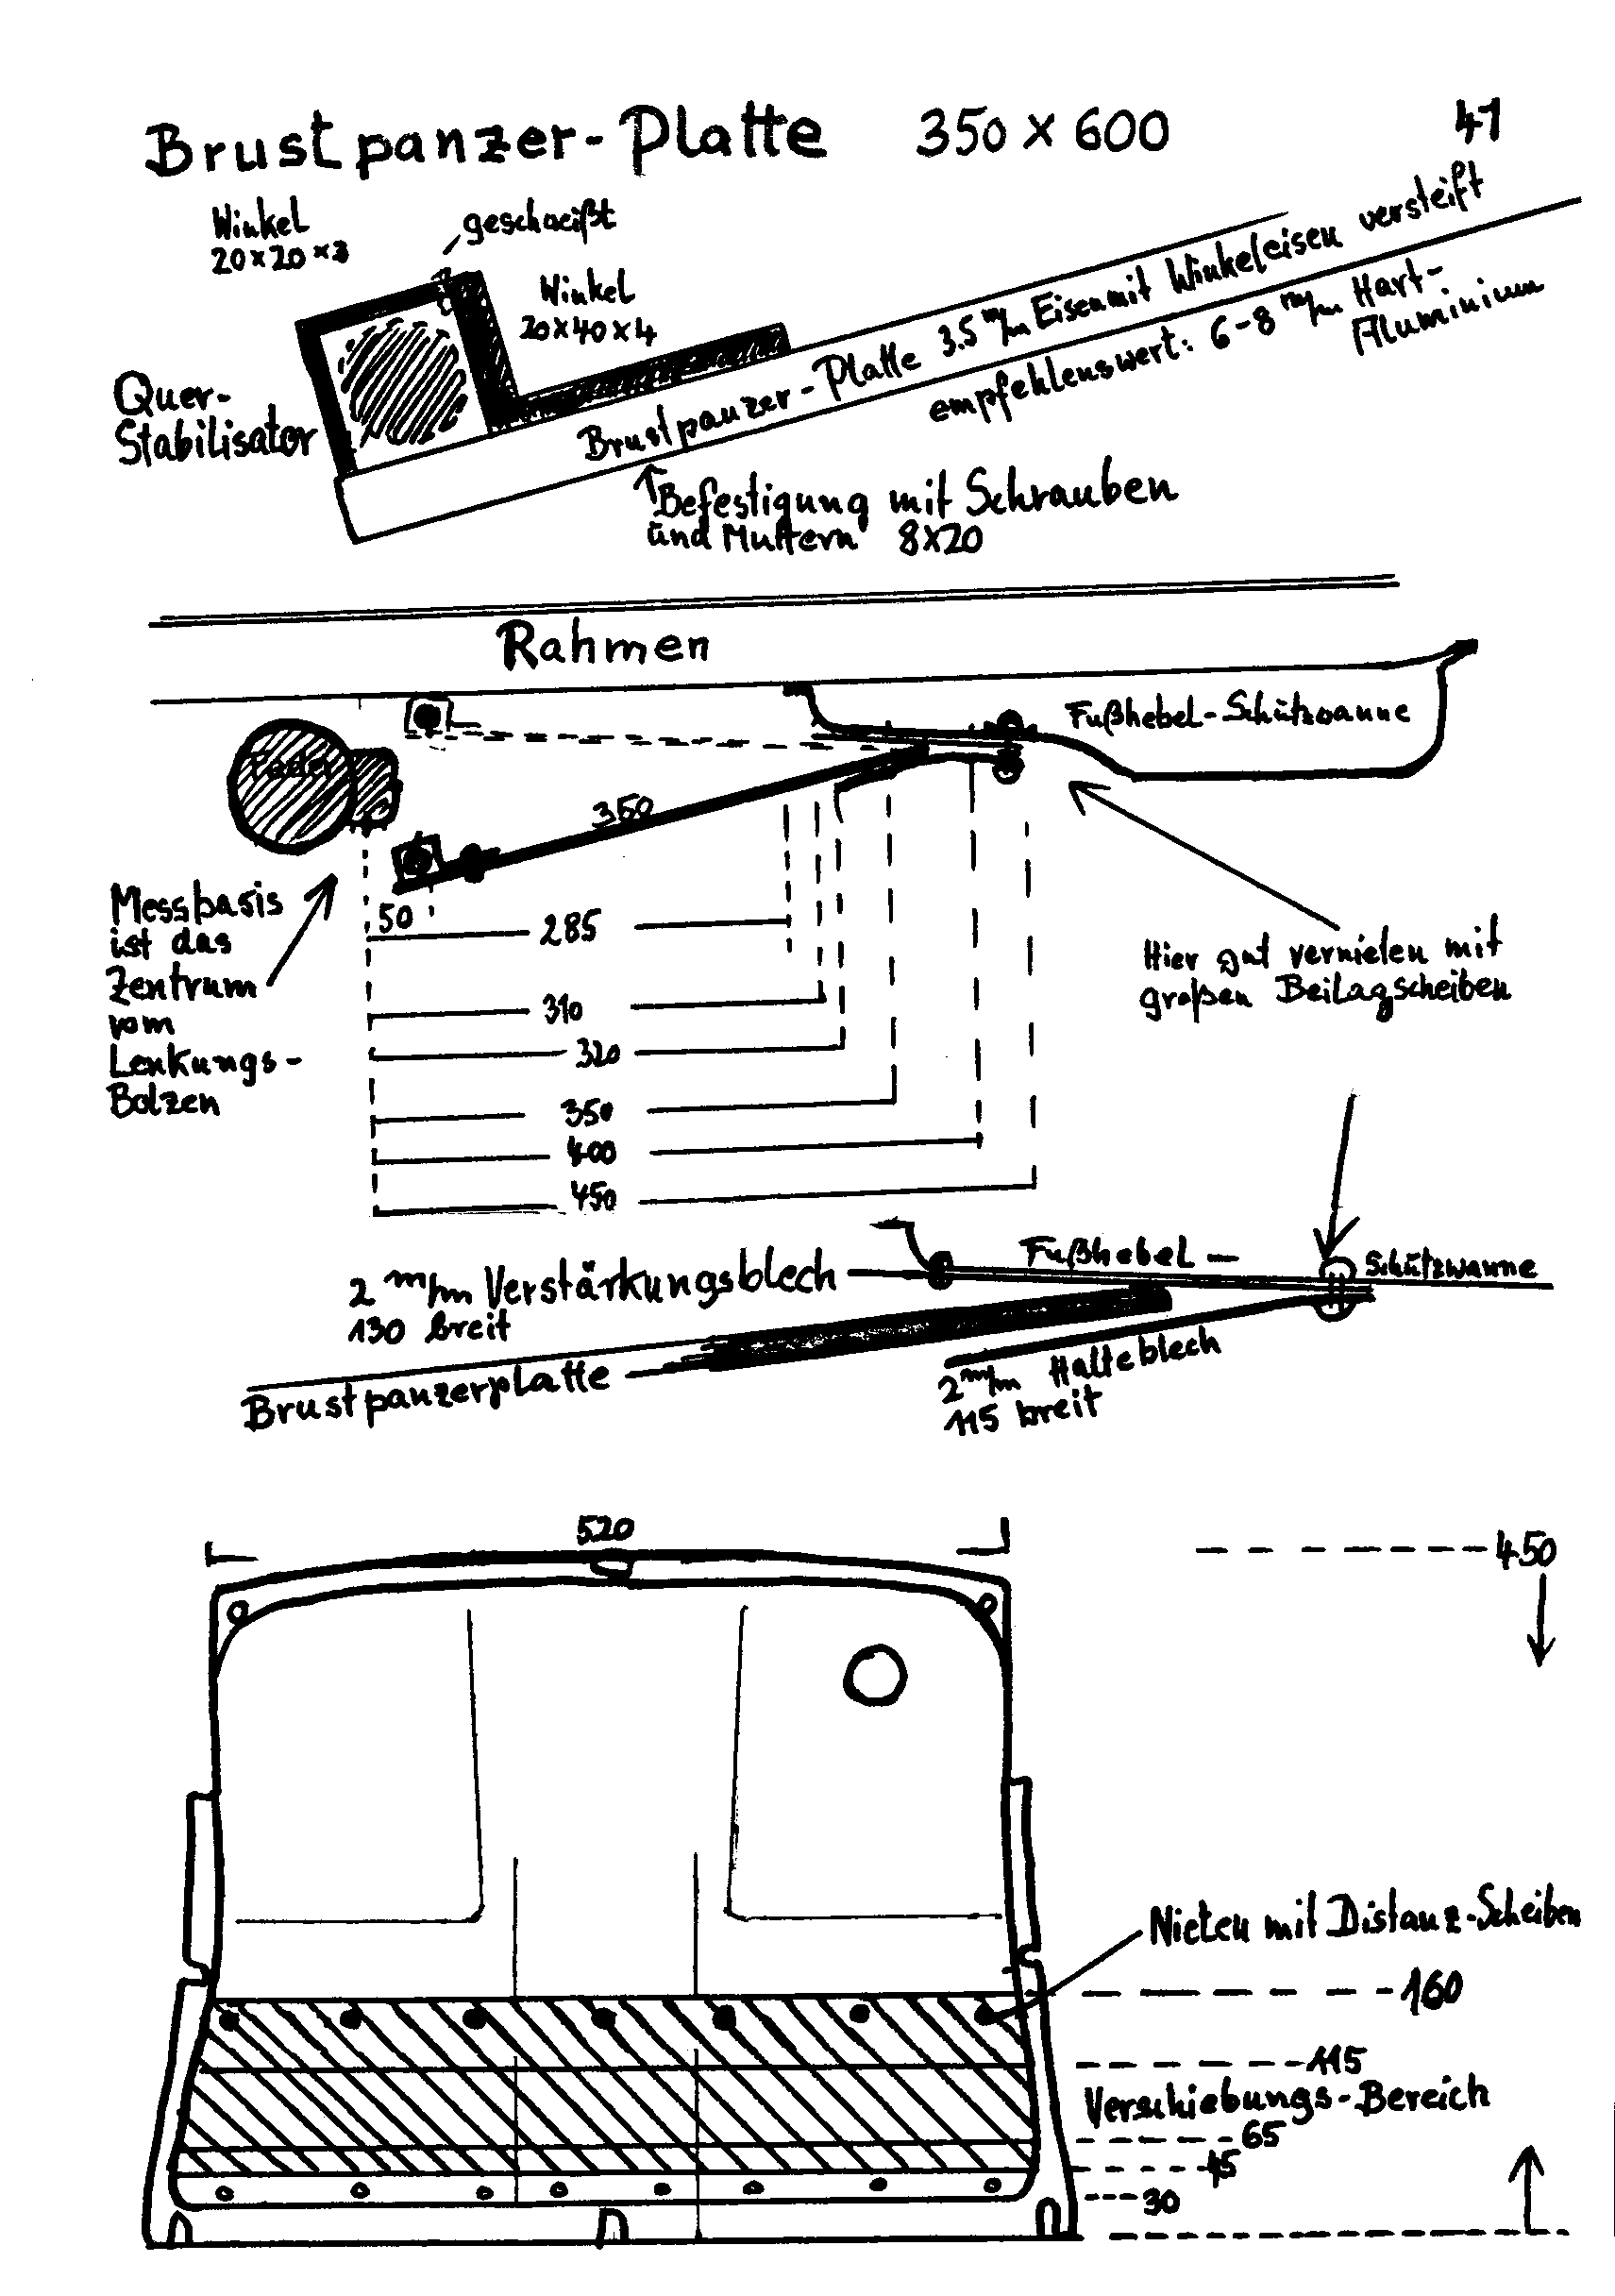 Brustpanzer-Platte 350 x 600
41
Winkel
20x20x3
geschweißt
Winkel
20x40x4
Quer-
Stabilisator
Brustpanzer-Platte 3.5 m/m Eisen mit Winkeleisen versteift
empfehlenswert: 6-8 m/m Hart-
Aluminium
Befestigung mit Schrauben
und Muttern 8x20
Rahmen
Fußhebel-Schützwanne
Feder
350
50
285
Messbasis
ist das
Zentrum
vom
Lenkungs-
Bolzen
310
320
350
400
450
Hier gut vernieten mit
großen Beilagscheiben
Fußhebel-
Schützwanne
2 m/m Verstärkungsblech
130 breit
Brustpanzerplatte
2 m/m Halteblech
115 breit
520
450
Nieten mit Distanz-Scheiben
160
115
Verschiebungs-Bereich
65
45
30